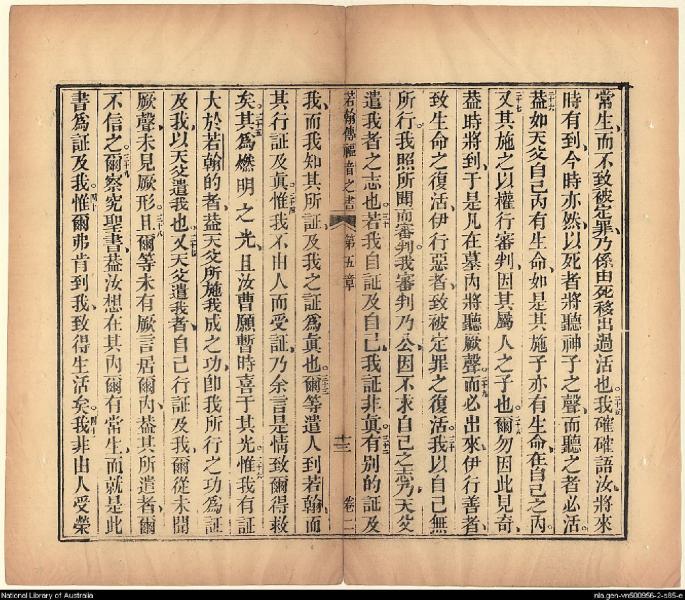 常生、而不致被定罪、乃係由死移出過活也。二十五我確確語汝將來
時有到、今時亦然、以死者將聽神子之聲、而聽之者必活
二十六蓋如天父自己內有生命、如是其施子亦有生命在自己之內。
二十七又其施之以權行審判、因其屬人之子也。二十八爾勿因此見奇、
蓋時將到、于是凡在墓內將聽厥聲。二十九而必出來、伊行善者、
致生命之復活、伊行惡者、致被定罪之復活。三十我以自己無
所行、我照所聞而審判、我審判乃公、因不求自己之志、乃天父
遣我者之志也。三十一若我自証及自己、我証非眞。三十二有別的証及
若翰傳福音之書 第五章 十三 卷二
我、而我知其所証及我之証爲眞也。三十三爾等遣人到若翰、而
其行証及眞。三十四惟我不由人而受証、乃余言是情致爾得救
矣。三十五其爲燃明之光、且汝曹願暫時喜于其光。三十六惟我有証
大於若翰的者、蓋天父所施我成之功、卽我所行之功爲証
及我、以天父遣我也。三十七又天父遣我者、自己行証及我、爾從未聞
厥聲、未見厥形。三十八且爾等未有厥言居爾內、蓋其所遣者、爾
不信之。三十九爾察究聖書、蓋汝想在其內爾有常生、而就是此
書爲証及我。四十惟爾弗肯到我、致得生活矣。四十一我非由人受榮
National Library of Australia
nla.gen-vn500956-2-s85-e